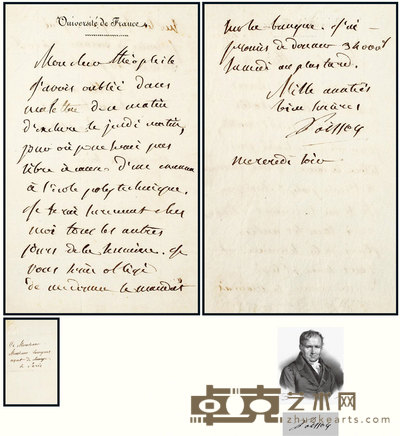 Université de France.
Mon cher théophile
J'avois oublié dans
ma lettre de ce matin
d'exclure le jeudi matin,
jour où je ne serai pas
libre à cause d'un examen
à l'école polytechnique.
Je serai surement chez
moi tous les autres
jours de la semaine. Je
vous serai obligé
de me donner le mandat
sur la banque. J'ai
promis de donner
samedi au plus tard.
Mille amitiés
bien sincères
Poisson
mercredi soir
A Monsieur
Monsieur
agent de change
à Paris
卓克艺术网
zhuokearts.com
Poisson